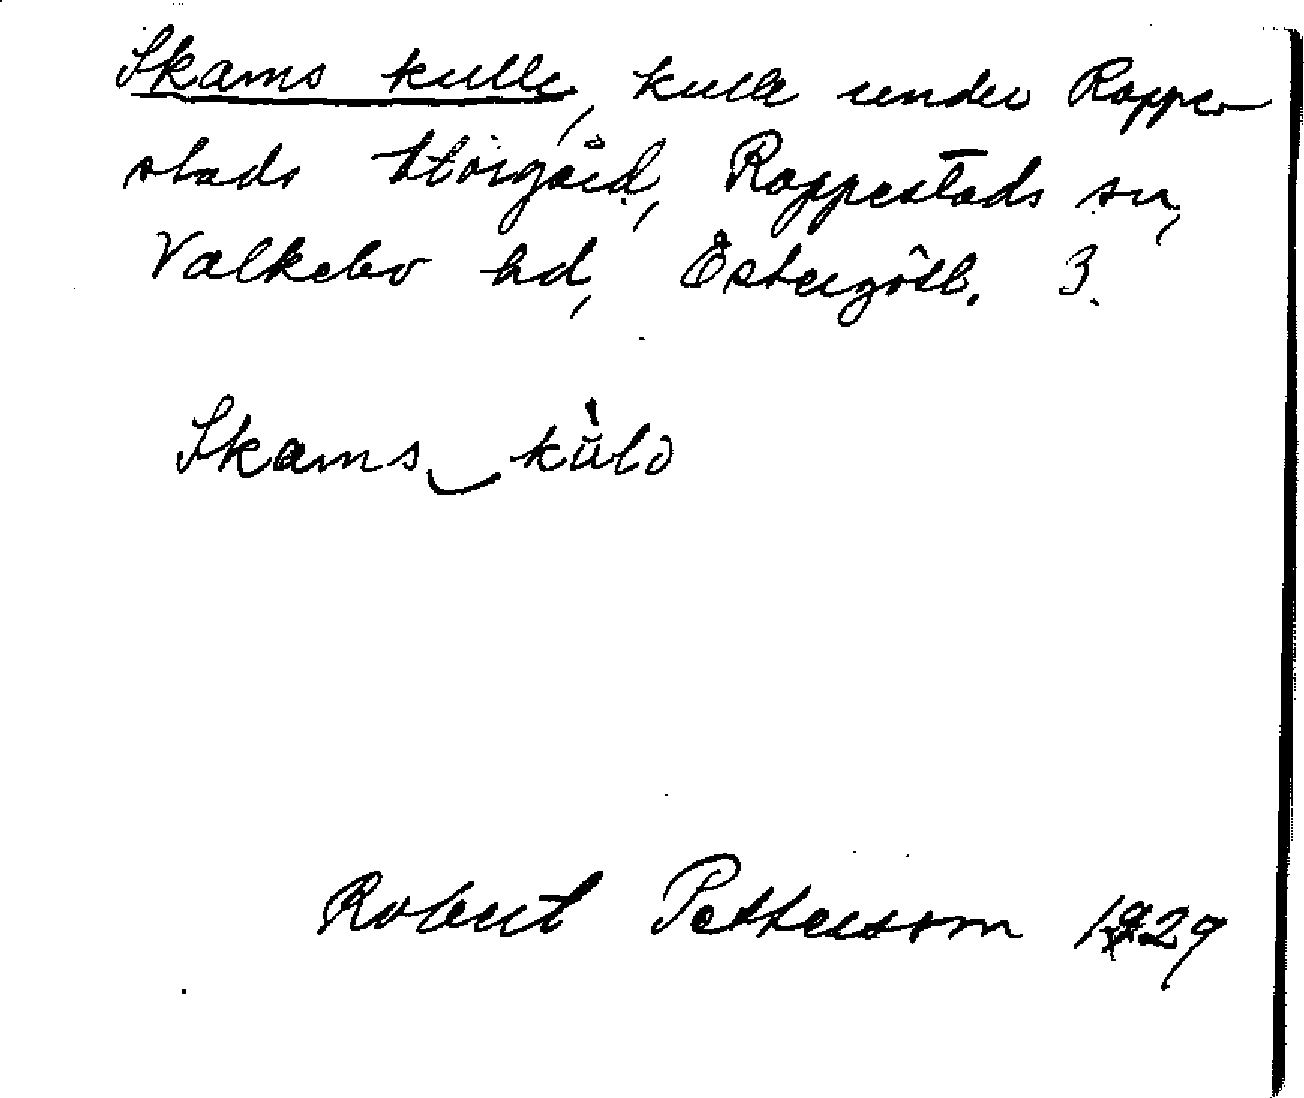 Skams kulle, kulle under Rappe-
stads Storgård, Rappestads sn,
Valkebo hd, Östergötl. 3.
Skams kùlo
Robert Pettersson 1929